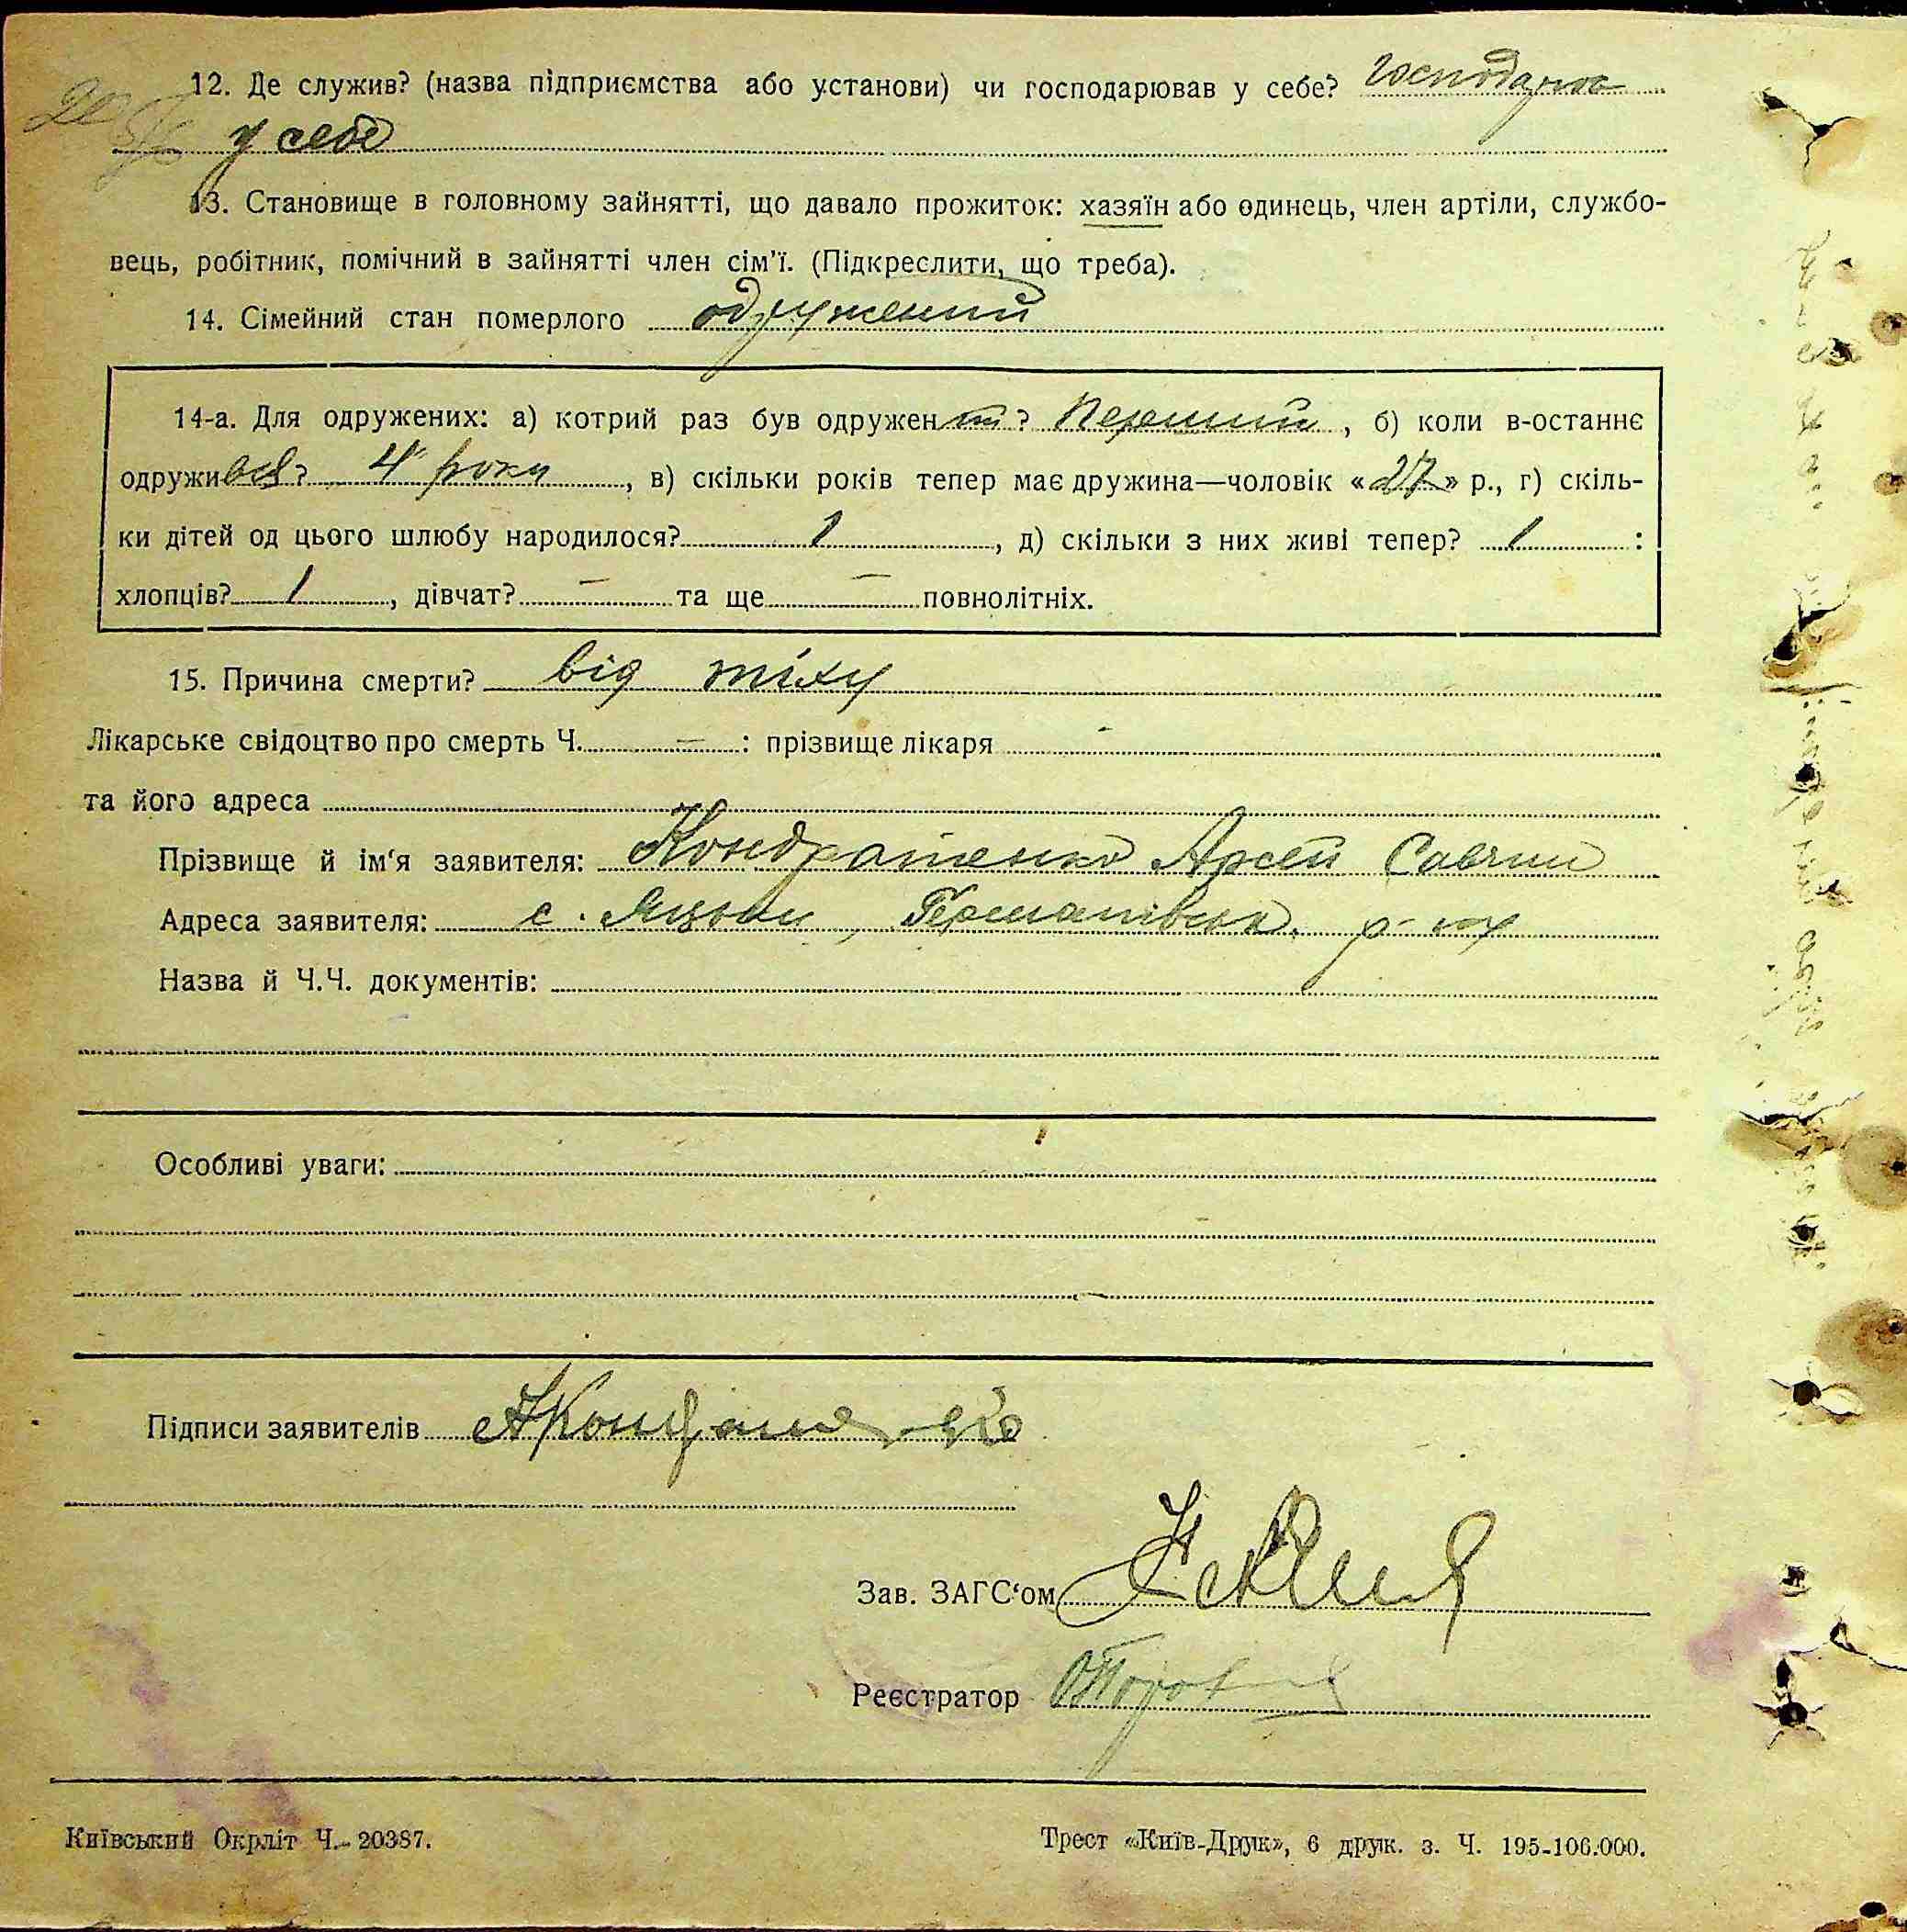 12. Де служив? (назва підприємства або установи) чи господарював у себе? господарюв
у себе
13. Становище в головному зайнятті, що давало прожиток: хазяїн або одинець, член артіли, службо-
вець, робітник, помічний в зайнятті член сім'ї. (Підкреслити, що треба).
14. Сімейний стан померлого одружений
14-а. Для одружених: а) котрий раз був одружен ? Перший, б) коли в-останнє
одруживсь? 4 роки, в) скільки років тепер має дружина—чоловік «27» р., г) скіль-
ки дітей од цього шлюбу народилося? 1, д) скільки з них живі тепер? 1 :
хлопців? 1, дівчат? — та ще — повнолітніх.
15. Причина смерти? від тіху
Лікарське свідоцтво про смерть Ч. — : прізвище лікаря -
та його адреса
Прізвище й ім'я заявителя: Кондратенко Арсей Савчин
Адреса заявителя: с. Яцьки, Германівськ. р-ну
Назва й Ч.Ч. документів:
Особливі уваги:
Підписи заявителів АКондратенко
Зав. ЗАГС'ом
Реєстратор
Київський Окрліт Ч. 20387.
Трест «Київ-Друк», 6 друк. з. Ч. 195-106.000.